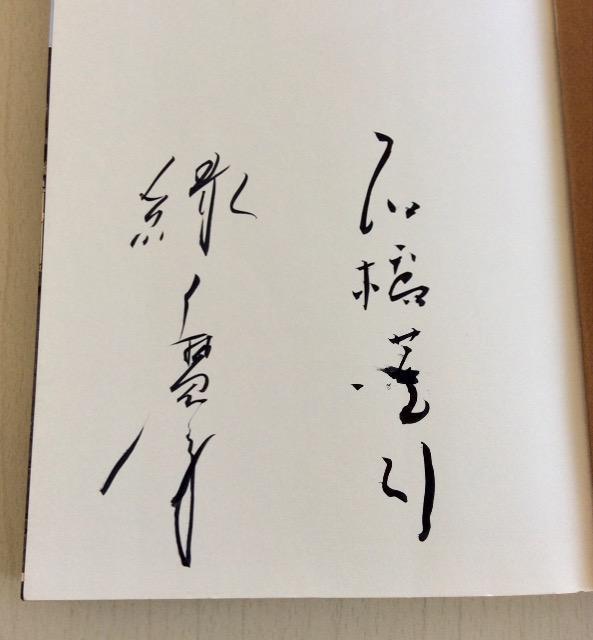 石橋蓮司
緑魔子